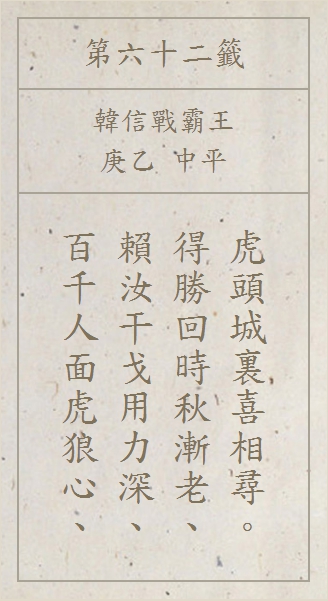 第六十二籤
韓信戰霸王
庚乙 中平
百千人面虎狼心、
賴汝干戈用力深、
得勝回時秋漸老、
虎頭城裏喜相尋。